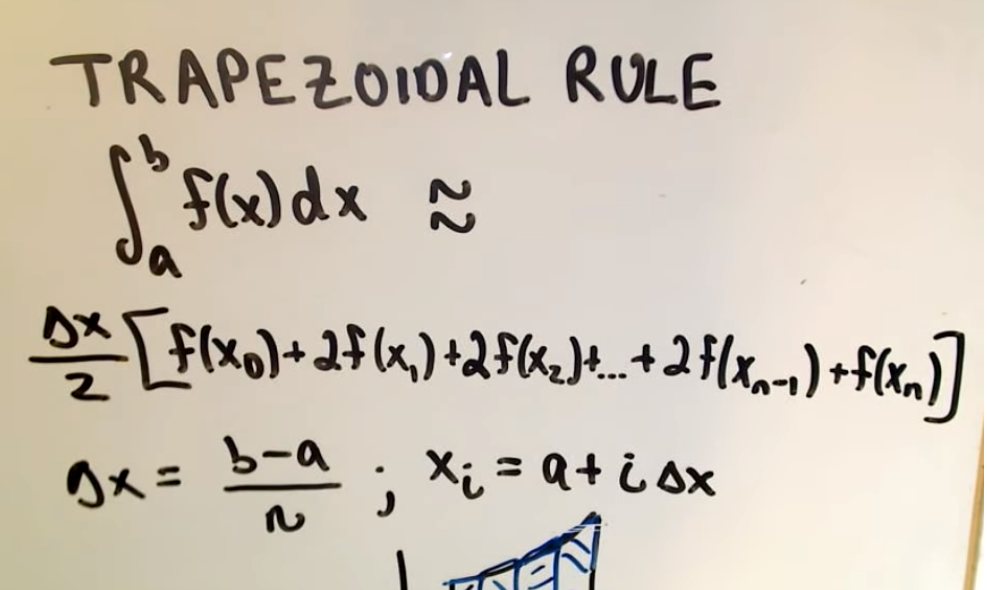 TRAPEZOIDAL RULE
∫ₐᵇ f(x)dx ≈
Δx/2 [f(x₀)+2f(x₁)+2f(x₂)+...+2f(xₙ₋₁)+f(xₙ)]
Δx = b-a/n ; xᵢ = a+iΔx